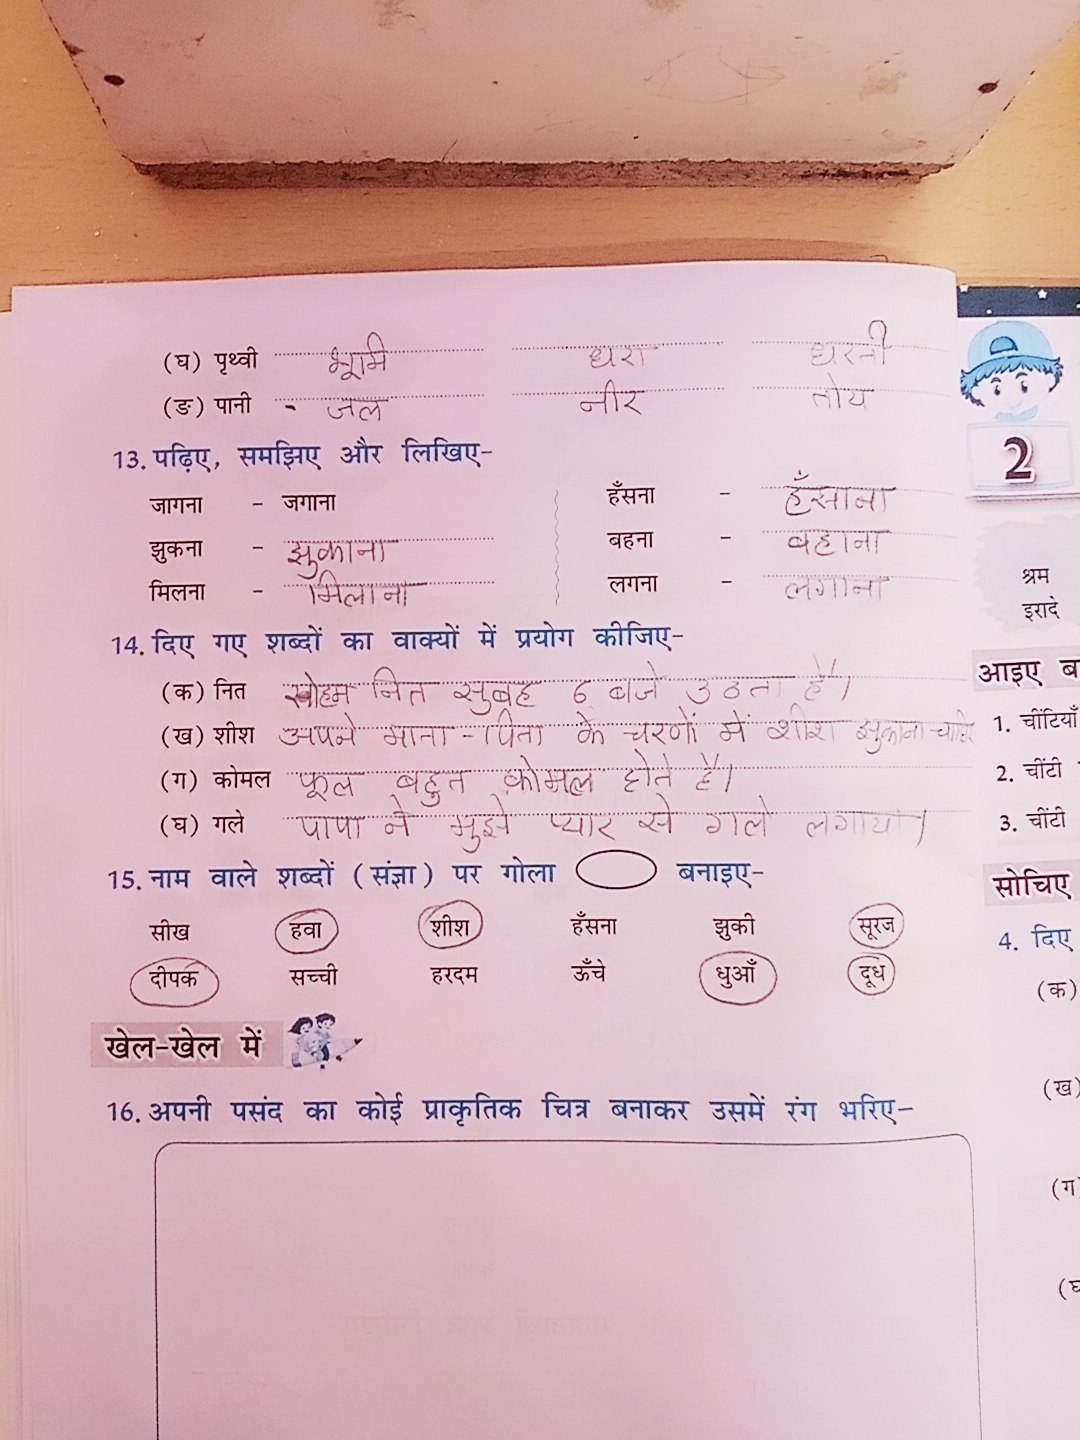 (घ) पृथ्वी भूमि धरा धरती
(ङ) पानी - जल नीर तोय
13. पढ़िए, समझिए और लिखिए-
जागना - जगाना हँसना - हँसाना
झुकना - झुकाना बहना - बहाना
मिलना - मिलाना लगना - लगाना
14. दिए गए शब्दों का वाक्यों में प्रयोग कीजिए-
(क) नित सोहम नित सुबह 6 बजे उठता है।
(ख) शीश अपने माता-पिता के चरणों में शीश झुकाना चाहिए
(ग) कोमल फूल बहुत कोमल होते हैं।
(घ) गले पापा ने मुझे प्यार से गले लगाया।
15. नाम वाले शब्दों (संज्ञा) पर गोला बनाइए-
सीख हवा शीश हँसना झुकी सूरज
दीपक सच्ची हरदम ऊँचे धुआँ दूध
खेल-खेल में
16. अपनी पसंद का कोई प्राकृतिक चित्र बनाकर उसमें रंग भरिए-
2
श्रम
इरादे
आइए ब
1. चींटियाँ
2. चींटी
3. चींटी
सोचिए
4. दिए
(क)
(ख)
(ग
(घ